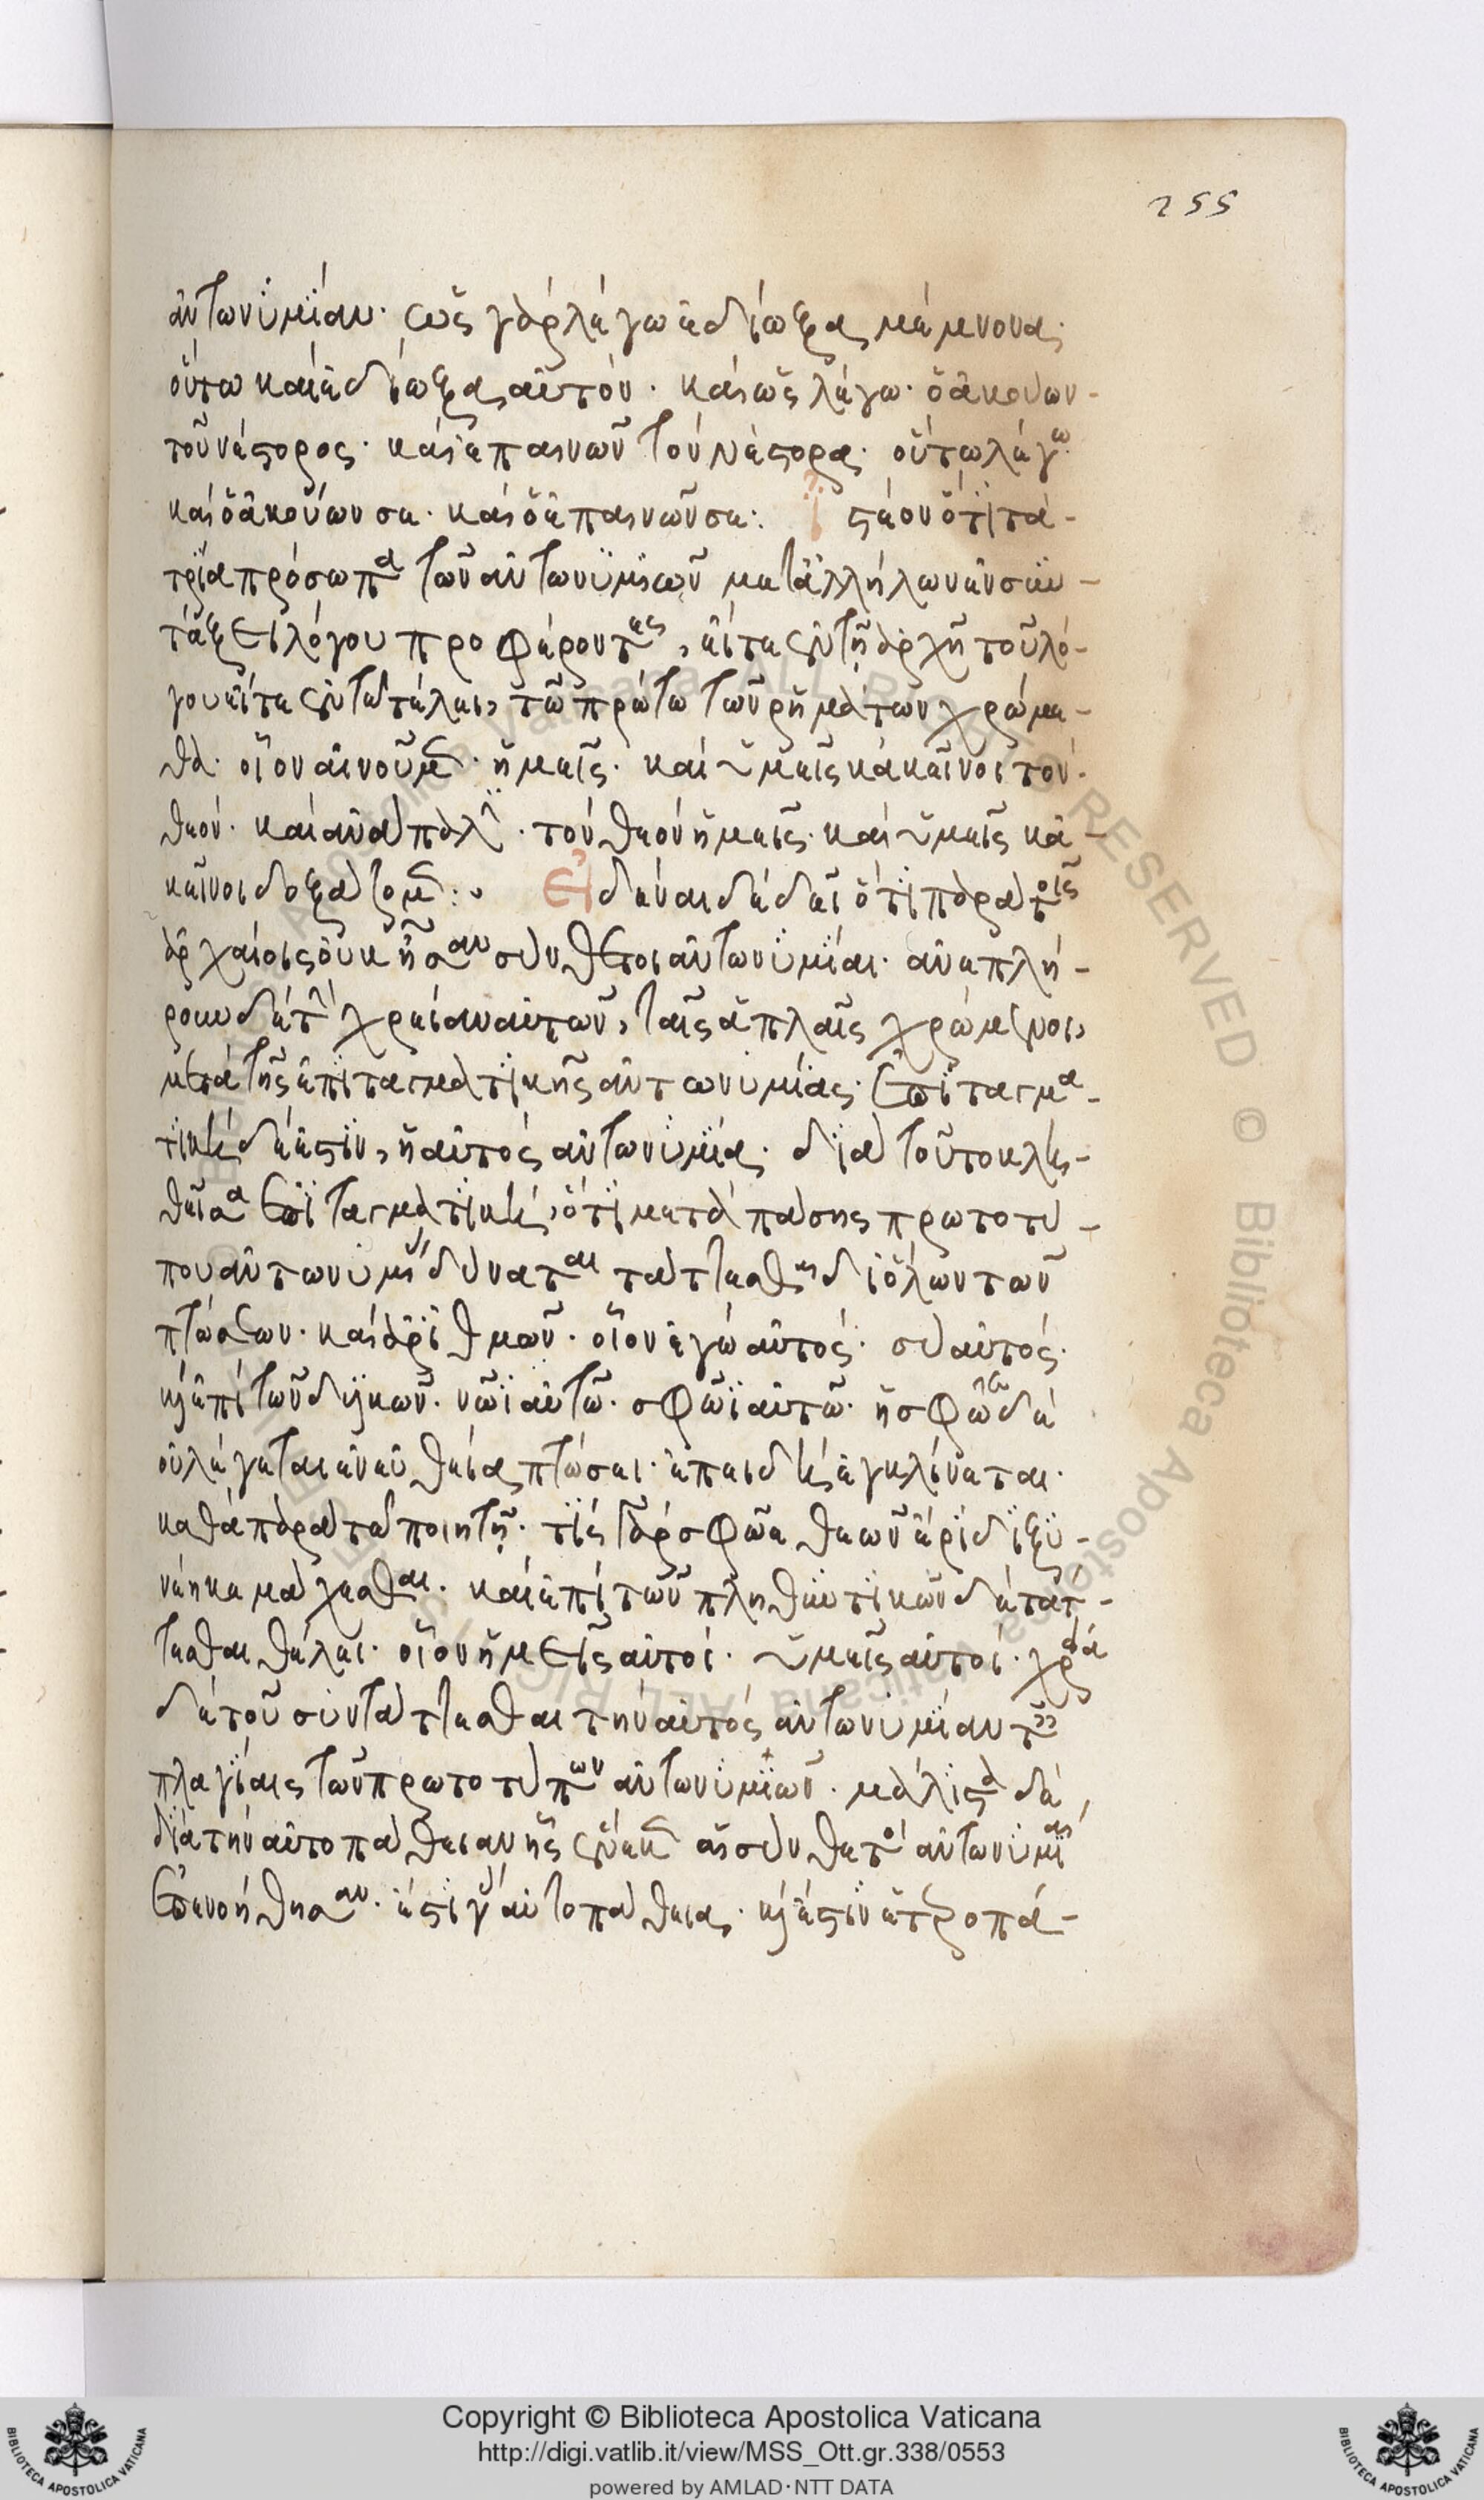 255
ἀντωνυμίαν· ὡς γὰρ λέγω ἐδίωξας μέμνονα·
οὕτω καὶ ἐδίωξας αὐτόν. καὶ ὡς λέγω· ὁ ἀκούων
τοῦ νέστορος· καὶ ἐπαινῶν τὸν νέστορα· οὕτω λέγω
καὶ ὁ ἀκούων σε· καὶ ὁ ἐπαινῶν σε: ἰστέον ὅτι τὰ
τρία πρόσωπα τῶν ἀντωνυμιῶν μετ' ἀλλήλων ἐν συν-
τάξει λόγου προφέροντες, εἴτε ἐν τῇ ἀρχῇ τοῦ λό-
γου εἴτε ἐν τῷ τέλει, τῷ πρώτω τῶν ῥημάτων χρώμε-
θα· οἷον αἰνοῦμεν· ἡμεῖς· καὶ ὑμεῖς κἀκεῖνοι τὸν
θεόν· καὶ ἀνάπαλιν· τὸν θεὸν ἡμεῖς· καὶ ὑμεῖς κἀ-
κεῖνοι δοξάζομεν: Εἰδέναι δὲ δεῖ ὅτι παρὰ τοῖς
ἀρχαίοις οὐκ ἦσαν σύνθετοι ἀντωνυμίαι· ἀνεπλή-
ρουν δὲ τὴν χρείαν αὐτῶν, ταῖς ἁπλαῖς χρώμενοι,
μετὰ τῆς ἐπιταγματικῆς ἀντωνυμίας· ἐπιταγμα-
τικὴ δέ ἐστιν, ἡ αὐτός ἀντωνυμία· διὰ τοῦτο κλη-
θεῖσα ἐπιταγματική, ὅτι μετὰ πάσης πρωτοτύ-
που ἀντωνυμίας δύναται τάττεσθαι δι' ὅλων τῶν
πτώσεων· καὶ ἀριθμῶν· οἷον ἐγὼ αὐτός· σὺ αὐτός·
καὶ ἐπὶ τῶν δυϊκῶν· νῶϊ αὐτώ· σφῶϊ αὐτώ· ἡ σφωὲ δὲ
οὐ λέγεται ἐν εὐθεία πτώσει· ἐπειδὴ ἐγκλίνεται·
καθὰ παρὰ τῷ ποιητῇ· τίς τάρ σφωε θεῶν ἔριδι ξυ-
νέηκε μάχεσθαι. καὶ ἐπὶ τῶν πληθυντικῶν δὲ τάτ-
τεσθαι θέλει· οἷον ἡμεῖς αὐτοί· ὑμεῖς αὐτοί· χρεία
δὲ τοῦ συντάττεσθαι τὴν αὐτός ἀντωνυμίαν ταῖς
πλαγίαις τῶν πρωτοτύπων ἀντωνυμιῶν· μάλιστα δὲ
διὰ τὴν αὐτοπάθειαν ἧς ἕνεκεν αἱ σύνθετοι ἀντωνυμίαι
ἐπενοήθησαν· ἔστι γὰρ αὐτοπάθεια· καὶ ἔστιν ἑτεροπά-
Copyright © Biblioteca Apostolica Vaticana
http://digi.vatlib.it/view/MSS_Ott.gr.338/0553
powered by AMLAD·NTT DATA